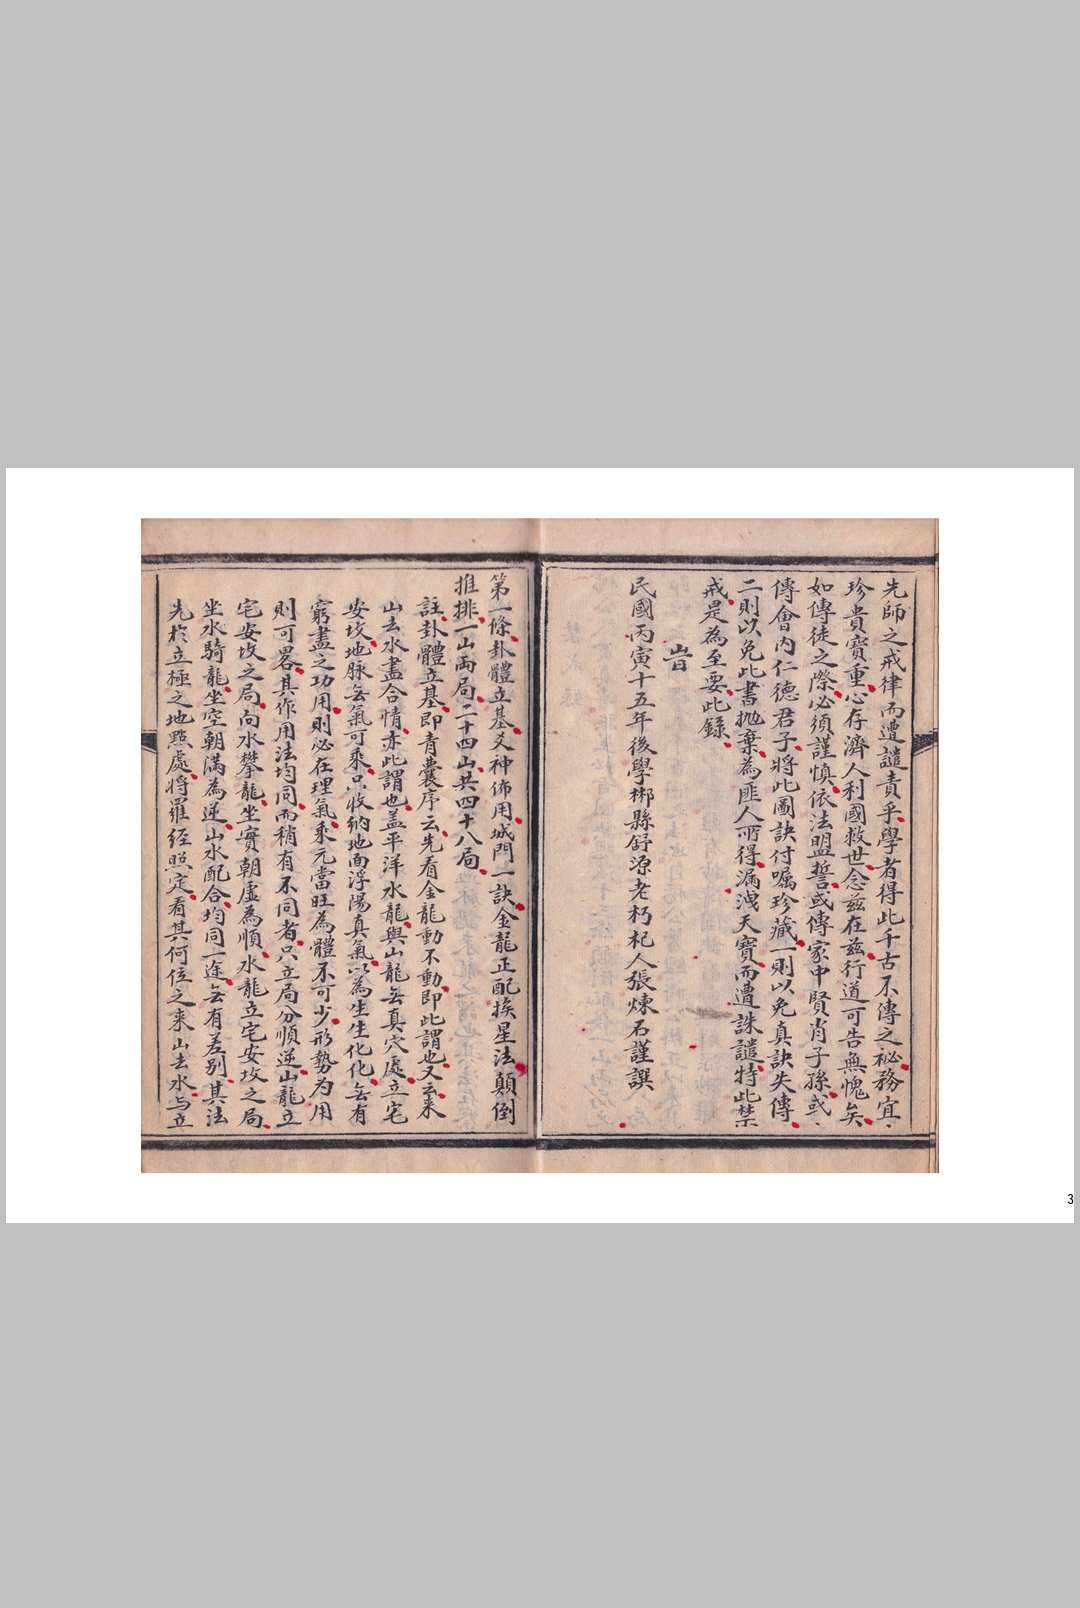 先師之戒律而遭譴責乎學者得此千古不傳之祕務宜
珍貴寳重心存濟人利國救世念兹在兹行道可告無愧矣
如傳徒之際必須謹慎依法盟誓或傳家中賢肖子孫或
傳會内仁德君子將此圖訣付嘱珍藏一則以免真訣失傳
二則以免此書拋棄為匪人所得漏洩天寶而遭誅譴特此禁
戒是為至要此録
旹
民國丙寅十五年後學郴縣舒源老朽杞人張煉石謹譔
第一條卦體立基爻神佈用城門一訣金龍正配挨星法顛倒
推排一山両局二十四山共四十八局
註卦體立基即青囊序云先看金龍動不動即此謂也又云来
山去水盡合情亦此謂也盖平洋水龍與山龍無真穴處立宅
安坟地脉無氣可乘只收納地面浮陽真氣以為生生化化無有
窮盡之功用則必在理氣乘元當旺為體不可少形勢为用
則可畧其作用法均同而稍有不同者只立局分順逆山龍立
宅安坟之局向水攀龍坐實朝虚為順水龍立宅安坟之局
坐水騎龍坐空朝满為逆山水配合均同一途無有差别其法
先於立極之地點處將羅经照定看其何位之来山去水与立
3